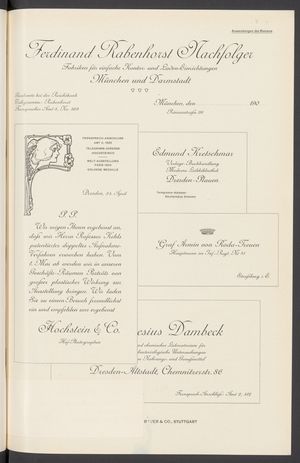 Anwendungen der Reklame
Ferdinand Rabenhorst Nachfolger
Fabriken für einfache Kontor- und Laden-Einrichtungen
München und Darmstadt
München, den 190
FERNSPRECH-ANSCHLUSS
AMT II, 1625
TELEGRAMM-ADRESSE
HOCHSTEINCO
WELT-AUSSTELLUNG
PARIS 1900
GOLDENE MEDAILLE
Dresden, 24. April
P. P.
Wir zeigen Ihnen ergebenst an,
daß wir Herrn Professor Kuhls
patentiertes doppeltes Aufnahme-
Verfahren erworben haben. Vom
1. Mai ab werden wir in unseren
Geschäfts-Räumen Porträts von
großer plastischer Wirkung zur
Ausstellung bringen. Wir laden
Sie zu einem Besuch freundlichst
ein und empfehlen uns ergebenst
Hochstein & Co.
Hof-Photographen
Edmund Kretschmar
Verlags-Buchhandlung
Moderne Leihbibliothek
Dresden-Plauen
Telegramm-Adresse:
Kretschmar Dresden
Graf Armin von Roda-Treuen
Hauptmann im Inf.-Regt. Nr. 41
Straßburg i. E.
esius Dambeck
und chemisches Laboratorium für
bakteriologische Untersuchungen
Nahrungs- und Genußmittel
Dresden-Altstadt, Chemnitzerstr. 86
Fernsprech-Anschluß: Amt 2, 482
& CO., STUTTGART